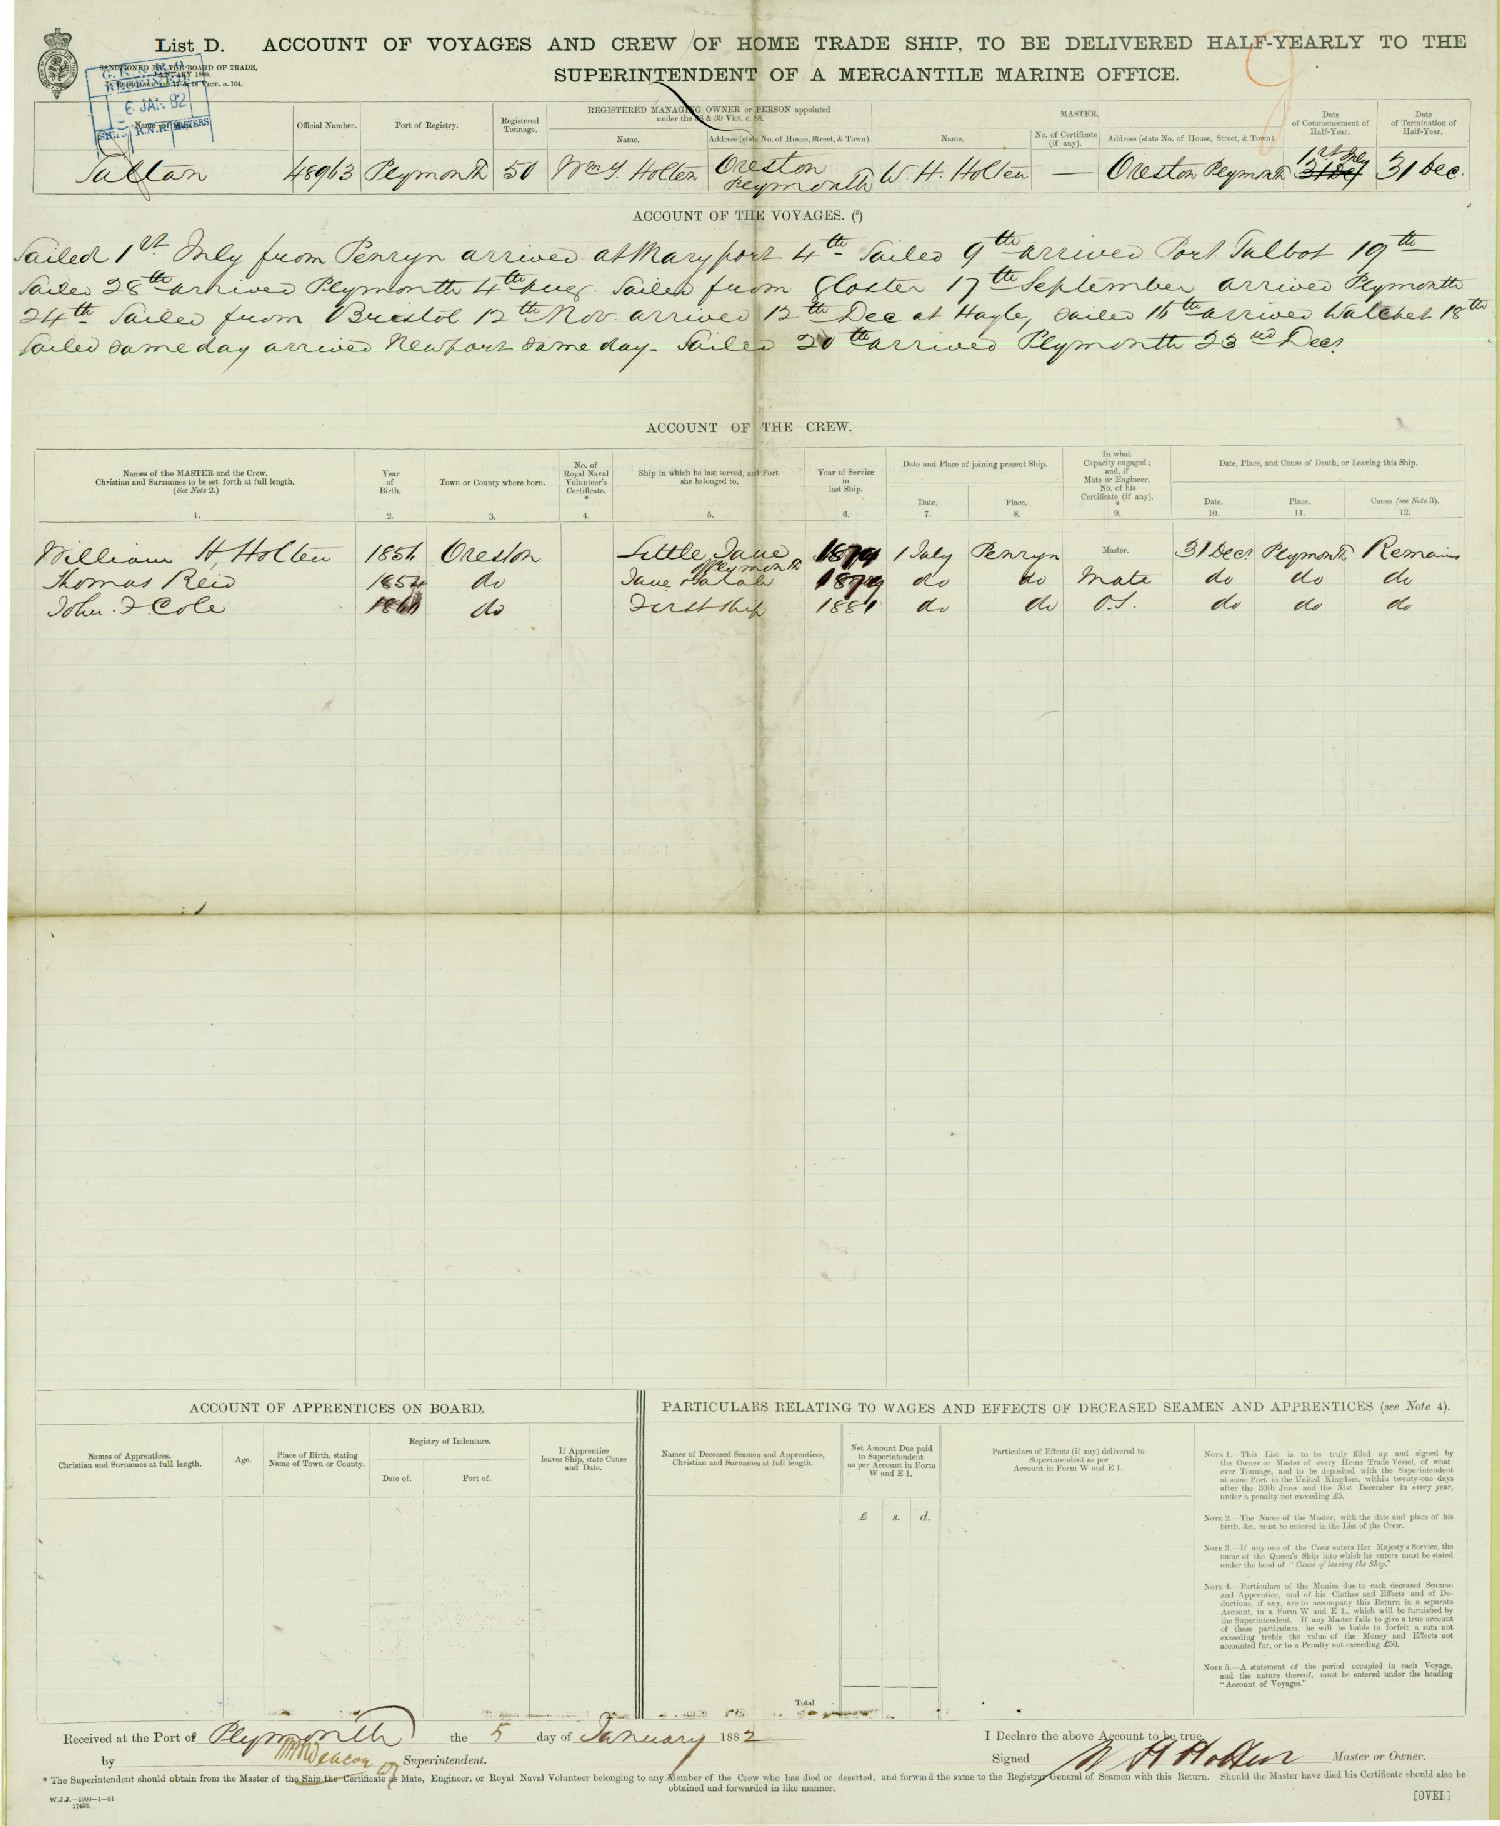 List D. ACCOUNT OF VOYAGES AND CREW OF HOME TRADE SHIP, TO BE DELIVERED HALF-YEARLY TO THE
SUPERINTENDENT OF A MERCANTILE MARINE OFFICE.
SANCTIONED BY THE BOARD OF TRADE,
JANUARY 1880.
6 JAN 82
Official Number.
Port of Registry.
Registered Tonnage.
REGISTERED MANAGING OWNER or PERSON appointed
under the 38 & 39 Vict. c. 88.
Name.
Address (state No. of House, Street, & Town)
MASTER.
Name.
No. of Certificate (if any).
Address (state No. of House, Street, & Town).
Date of Commencement of Half-Year.
Date of Termination of Half-Year.
48963 Plymouth 50 Wm Holten Oreston Plymouth W. H. Holten — Oreston Plymouth 1st July 31 Dec 31 Dec.
ACCOUNT OF THE VOYAGES. (5)
Sailed 1st July from Penryn arrived at Maryport 4th Sailed 9th arrived Port Talbot 19th
Sailed 28th arrived Plymouth 4th Aug Sailed from Gloster 17th September arrived Plymouth
24th Sailed from Bristol 12th Nov arrived 12th Dec at Hayle, Sailed 16th arrived Watchet 18th
Sailed same day arrived Newport same day - Sailed 20th arrived Plymouth 23rd Decr
ACCOUNT OF THE CREW.
Names of the MASTER and the Crew.
Christian and Surnames to be set forth at full length.
(see Note 2.)
1.
Year of Birth.
2.
Town or County where born.
3.
No. of Royal Naval Volunteer's Certificate.
*
4.
Ship in which he last served, and Port she belonged to.
5.
Year of Service in last Ship.
6.
Date and Place of joining present Ship.
Date.
7.
Place.
8.
In what Capacity engaged; and, if Mate or Engineer, No. of his Certificate (if any).
*
9.
Date, Place, and Cause of Death, or Leaving this Ship.
Date.
10.
Place.
11.
Cause (see Note 3).
12.
William H, Holten 1856 Oreston Little Jane Plymouth 1879 1 July Penryn Master. 31 Decr Plymouth Remains
Thomas Reid 1854 do Jane Sarah 1879 do do Mate do do do
John F Cole do First ship 1881 do do O.S. do do do
ACCOUNT OF APPRENTICES ON BOARD.
Names of Apprentices.
Christian and Surnames at full length.
Age.
Place of Birth, stating Name of Town or County.
Registry of Indenture.
Date of.
Port of.
If Apprentice leaves Ship, state Cause and Date.
PARTICULARS RELATING TO WAGES AND EFFECTS OF DECEASED SEAMEN AND APPRENTICES (see Note 4).
Names of Deceased Seamen and Apprentices,
Christian and Surnames at full length.
Net Amount Due paid to Superintendent as per Account in Form W and E 1.
£ s. d.
Particulars of Effects (if any) delivered to
Superintendent as per
Account in Form W and E 1.
Total
NOTE 1.—This List is to be truly filled up and signed by
the Owner or Master of every Home Trade Vessel, of what-
ever Tonnage, and to be deposited with the Superintendent
at some Port in the United Kingdom, within twenty-one days
after the 30th June and the 31st December in every year,
under a penalty not exceeding £5.
NOTE 2.—The Name of the Master, with the date and place of his
birth, &c., must be entered in the List of the Crew.
NOTE 3.—If any one of the Crew enters Her Majesty's Service, the
name of the Queen's Ship into which he enters must be stated
under the head of "Cause of leaving the Ship."
NOTE 4.—Particulars of the Monies due to each deceased Seaman
and Apprentice, and of his Clothes and Effects and of De-
ductions, if any, are to accompany this Return in a separate
Account, in a Form W and E 1., which will be furnished by
the Superintendent. If any Master fails to give a true account
of these particulars, he will be liable to forfeit a sum not
exceeding treble the value of the Money and Effects not
accounted for, or to a Penalty not exceeding £50.
NOTE 5.—A statement of the period occupied in each Voyage,
and the nature thereof, must be entered under the heading
"Account of Voyages."
Received at the Port of Plymouth the 5 day of January 1882
by Superintendent.
I Declare the above Account to be true,
Signed W H Holten Master or Owner.
* The Superintendent should obtain from the Master of the Ship the Certificate of Mate, Engineer, or Royal Naval Volunteer belonging to any Member of the Crew who has died or deserted, and forward the same to the Registrar General of Seamen with this Return. Should the Master have died his Certificate should also be
obtained and forwarded in like manner.
[OVER]